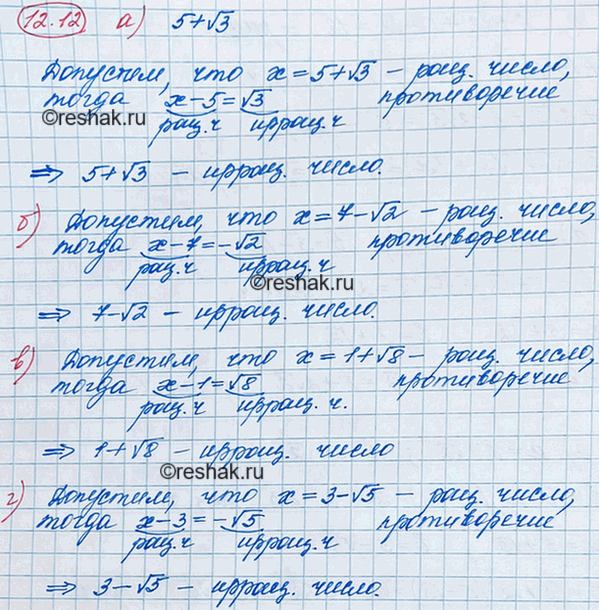 12.12 а) 5+√3
Допустим, что x=5+√3 – рац. число,
тогда x-5=√3 противоречие
©reshak.ru
рац.ч иррац.ч
⇒ 5+√3 – иррац. число.
б) Допустим, что x=7-√2 – рац. число,
тогда x-7=-√2 противоречие
рац.ч иррац.ч
©reshak.ru
⇒ 7-√2 – иррац. число.
в) Допустим, что x=1+√8 – рац. число,
тогда x-1=√8 противоречие
рац.ч иррац.ч.
⇒ 1+√8 – иррац. число
©reshak.ru
г) Допустим, что x=3-√5 – рац. число,
тогда x-3=-√5 противоречие
рац.ч иррац.ч
⇒ 3-√5 – иррац. число.